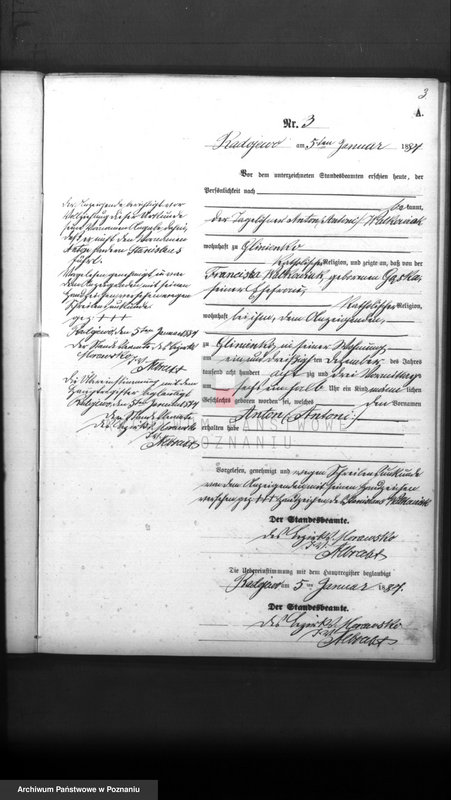 3
A.
Nr. 3
Radgewo am 5ten Januar 1884
Vor dem unterzeichneten Standesbeamten erschien heute, der
Persönlichkeit nach
be kannt,
der Tagelöhner Anton (Antoni)
wohnhaft zu Glinienko
katholischer Religion, und zeigte an, daß von der
Franciska geborenen
seiner Ehefrau,
katholischer Religion,
wohnhaft bei ihm, dem Anzeigenden,
zu Glinienko in seiner Wohnung
am ein und dreißigsten Dezember des Jahres
tausend acht hundert achtzig und drei Vormittags
um sechs einhalb Uhr ein Kind männlichen
Geschlechts geboren worden sei, welches den Vornamen
Anton (Antoni)
erhalten habe
Vorgelesen, genehmigt und wegen Schreibensunkunde
von dem Anzeigenden mit seinen Handzeichen
versehen gez: +++ Handzeichen des Stanislaus
Der Standesbeamte.
des Bezirks Morawsko
J.V.
Albrecht
Die Uebereinstimmung mit dem Hauptregister beglaubigt
am 5ten Januar 1884.
Der Standesbeamte.
des Bezirks Morawsko
J.V.
Albrecht
Der Anzeigende berichtigt vor
Vollziehung dieser Urkunde
seine Angabe dahin,
daß er nicht den Vornamen
Anton sondern Stanislaus
führt.
Vorgelesen genehmigt und von
dem Anzeigenden mit seinen
Handzeichen versehen wegen
Schreibensunkunde
gez: +++
den 5ten Januar 1884
Der Standesbeamte des Bezirks
Morawsko
J.V.
Albrecht
Die Uebereinstimmung mit dem
Hauptregister beglaubigt
den 5ten Januar 1884
Der Standesbeamte
des Bezirks Morawsko
J.V.
Albrecht
ARCHIWUM PAŃSTWOWE
W POZNANIU
Archiwum Państwowe w Poznaniu